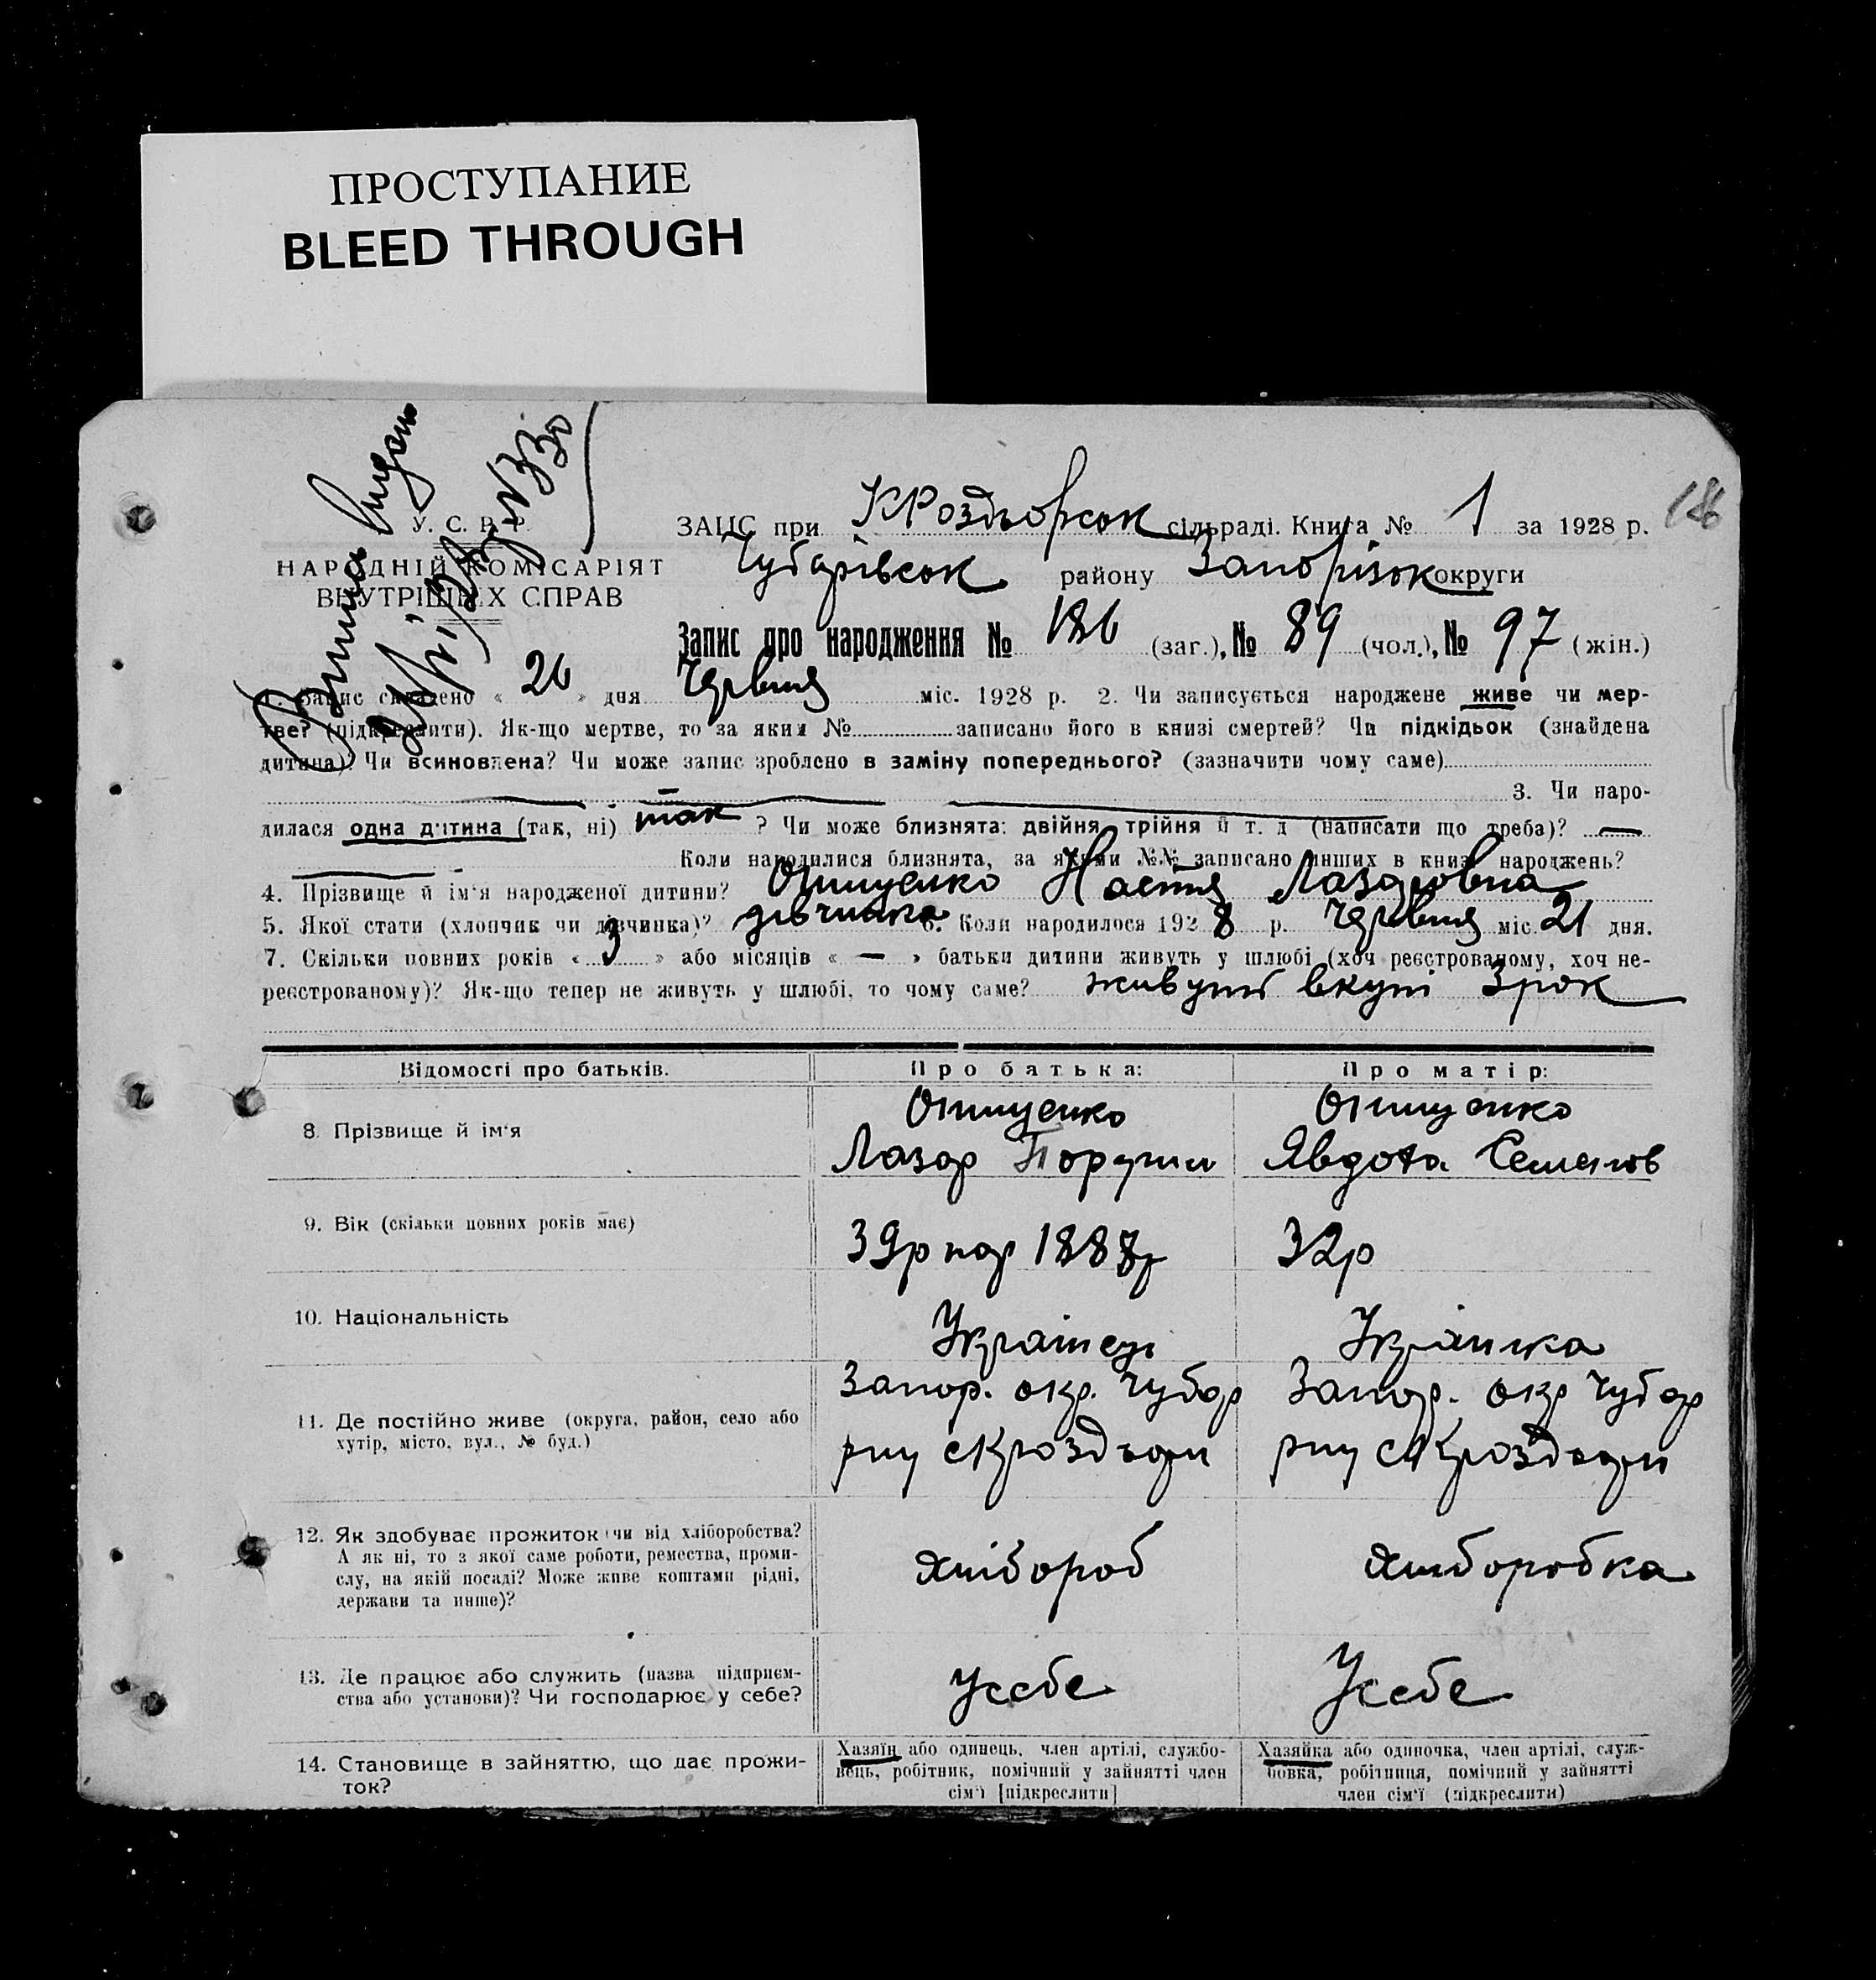 ПРОСТУПАНИЕ
BLEED THROUGH
186
У. С. Р. Р.
НАРОДНІЙ КОМІСАРІЯТ
ВНУТРІШНІХ СПРАВ
ЗАЦС при КРоздорськ сільраді. Книга № 1 за 1928 р.
Чубарівськ району Запорізьк округи
Запис про народження № 186 (заг.), № 89 (чол.), № 97 (жін.)
1. Запис складено « 26 » дня Червня міс. 1928 р. 2. Чи записується народжене живе чи мер-
тве? (підкреслити). Як-що мертве, то за яким № записано його в книзі смертей? Чи підкідьок (знайдена
дитина)? Чи всиновлена? Чи може запис зроблено в заміну попереднього? (зазначити чому саме)
3. Чи наро-
дилася одна дитина (так, ні) так ? Чи може близнята: двійня, трійня й т. д (написати що треба)? —
Коли народилися близнята, за якими №№ записано инших в книзі народжень?
4. Прізвище й ім'я народженої дитини? Онищенко Настя Лазоровна
5. Якої стати (хлопчик чи дівчинка)? дівчинка 6. Коли народилося 1928 р. Червня міс. 21 дня.
7. Скільки повних років « 3 » або місяців « — » батьки дитини живуть у шлюбі (хоч реєстрованому, хоч не-
реєстрованому)? Як-що тепер не живуть у шлюбі, то чому саме? живуть вкупі 3 рок
Відомості про батьків. Про батька: Про матір:
8. Прізвище й ім'я Онищенко Лазор Онищенко Явдота Семенов
9. Вік (скільки повних років має) 39р 32р
10. Національність Українец Українка
11. Де постійно живе (округа, район, село або
хутір, місто, вул., № буд.)
Запор. окр. Чубар Запор. окр Чубар
рну с Кроздори рну с Кроздори
12. Як здобуває прожиток: чи від хліборобства?
А як ні, то з якої саме роботи, ремества, проми-
слу, на якій посаді? Може живе коштами рідні,
держави та инше)?
хлібороб хлиборобка
13. Де працює або служить (назва підприєм-
ства або установи)? Чи господарює у себе?
Усебе Усебе
14. Становище в зайняттю, що дає прожи-
ток?
Хазяїн або одинець, член артілі, службо-
вець, робітник, помічний у зайнятті член
сім'ї [підкреслити]
Хазяйка або одиночка, член артілі, служ-
бовка, робітниця, помічний у зайнятті
член сім'ї (підкреслити)